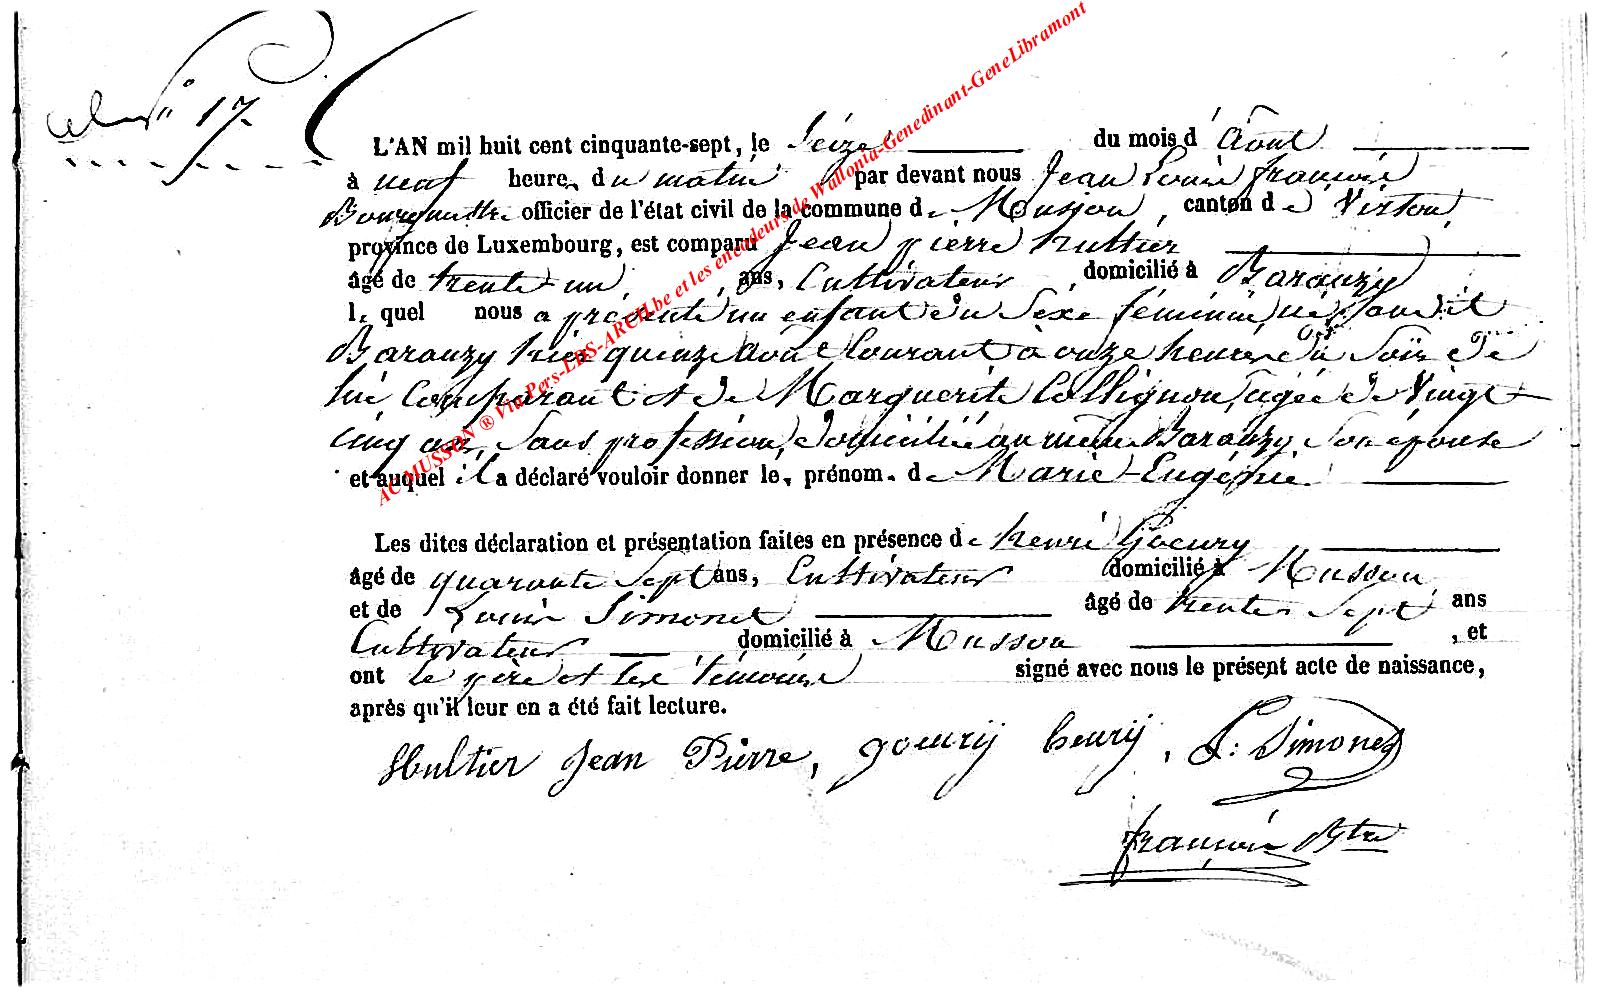 N° 17.
L'AN mil huit cent cinquante-sept, le Seize du mois d'Août
à neuf heures du matin par devant nous Jean Louis François
Bourgmestre officier de l'état civil de la commune de Musson, canton de Virton,
province de Luxembourg, est comparu Jean pierre hultier
âgé de trente-un, ans, Cultivateur, domicilié à Baranzy
lequel nous a présenté un enfant du Sexe féminin, né
Baranzy hier quinze août Courant à onze heures du Soir de
lui Comparant et de Marguerite Collignon, agée de Vingt
cinq ans, Sans profession, domiciliée au même Baranzy, Son épouse
et auquel il a déclaré vouloir donner les prénoms de Marie-Eugénie.
Les dites déclaration et présentation faites en présence de henri Goeury
âgé de quarante Sept ans, Cultivateur domicilié à Musson
et de Louis Simonet âgé de trente Sept ans
Cultivateur domicilié à Musson, et
ont le père et les témoins signé avec nous le présent acte de naissance,
après qu'il leur en a été fait lecture.
Hultier Jean Pierre, goeurij henrij, L: Simonet
françois Btre
AC MUSSON ® Via Pers-LDS-ARCH.be et les encodeurs de Wallonia-Genedinant-GeneLibramont